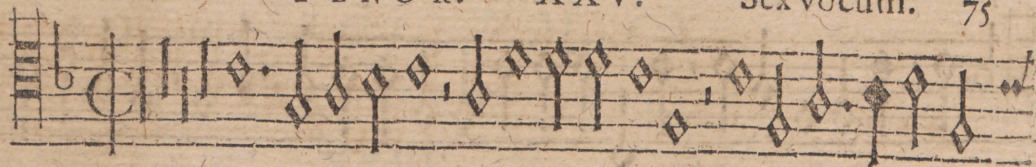 TENOR. XXV. Sex vocum. 75